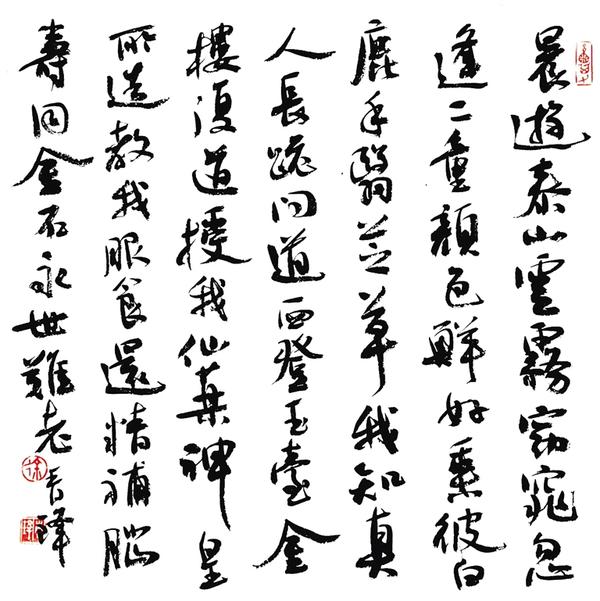 晨遊泰山雲霧窈窕忽
逢二童顏色鮮好乘彼白
鹿手翳芝草我知真
人長跪問道西登玉臺金
樓復道授我仙藥神皇
所造教我服食還精補腦
壽同金石永世難老